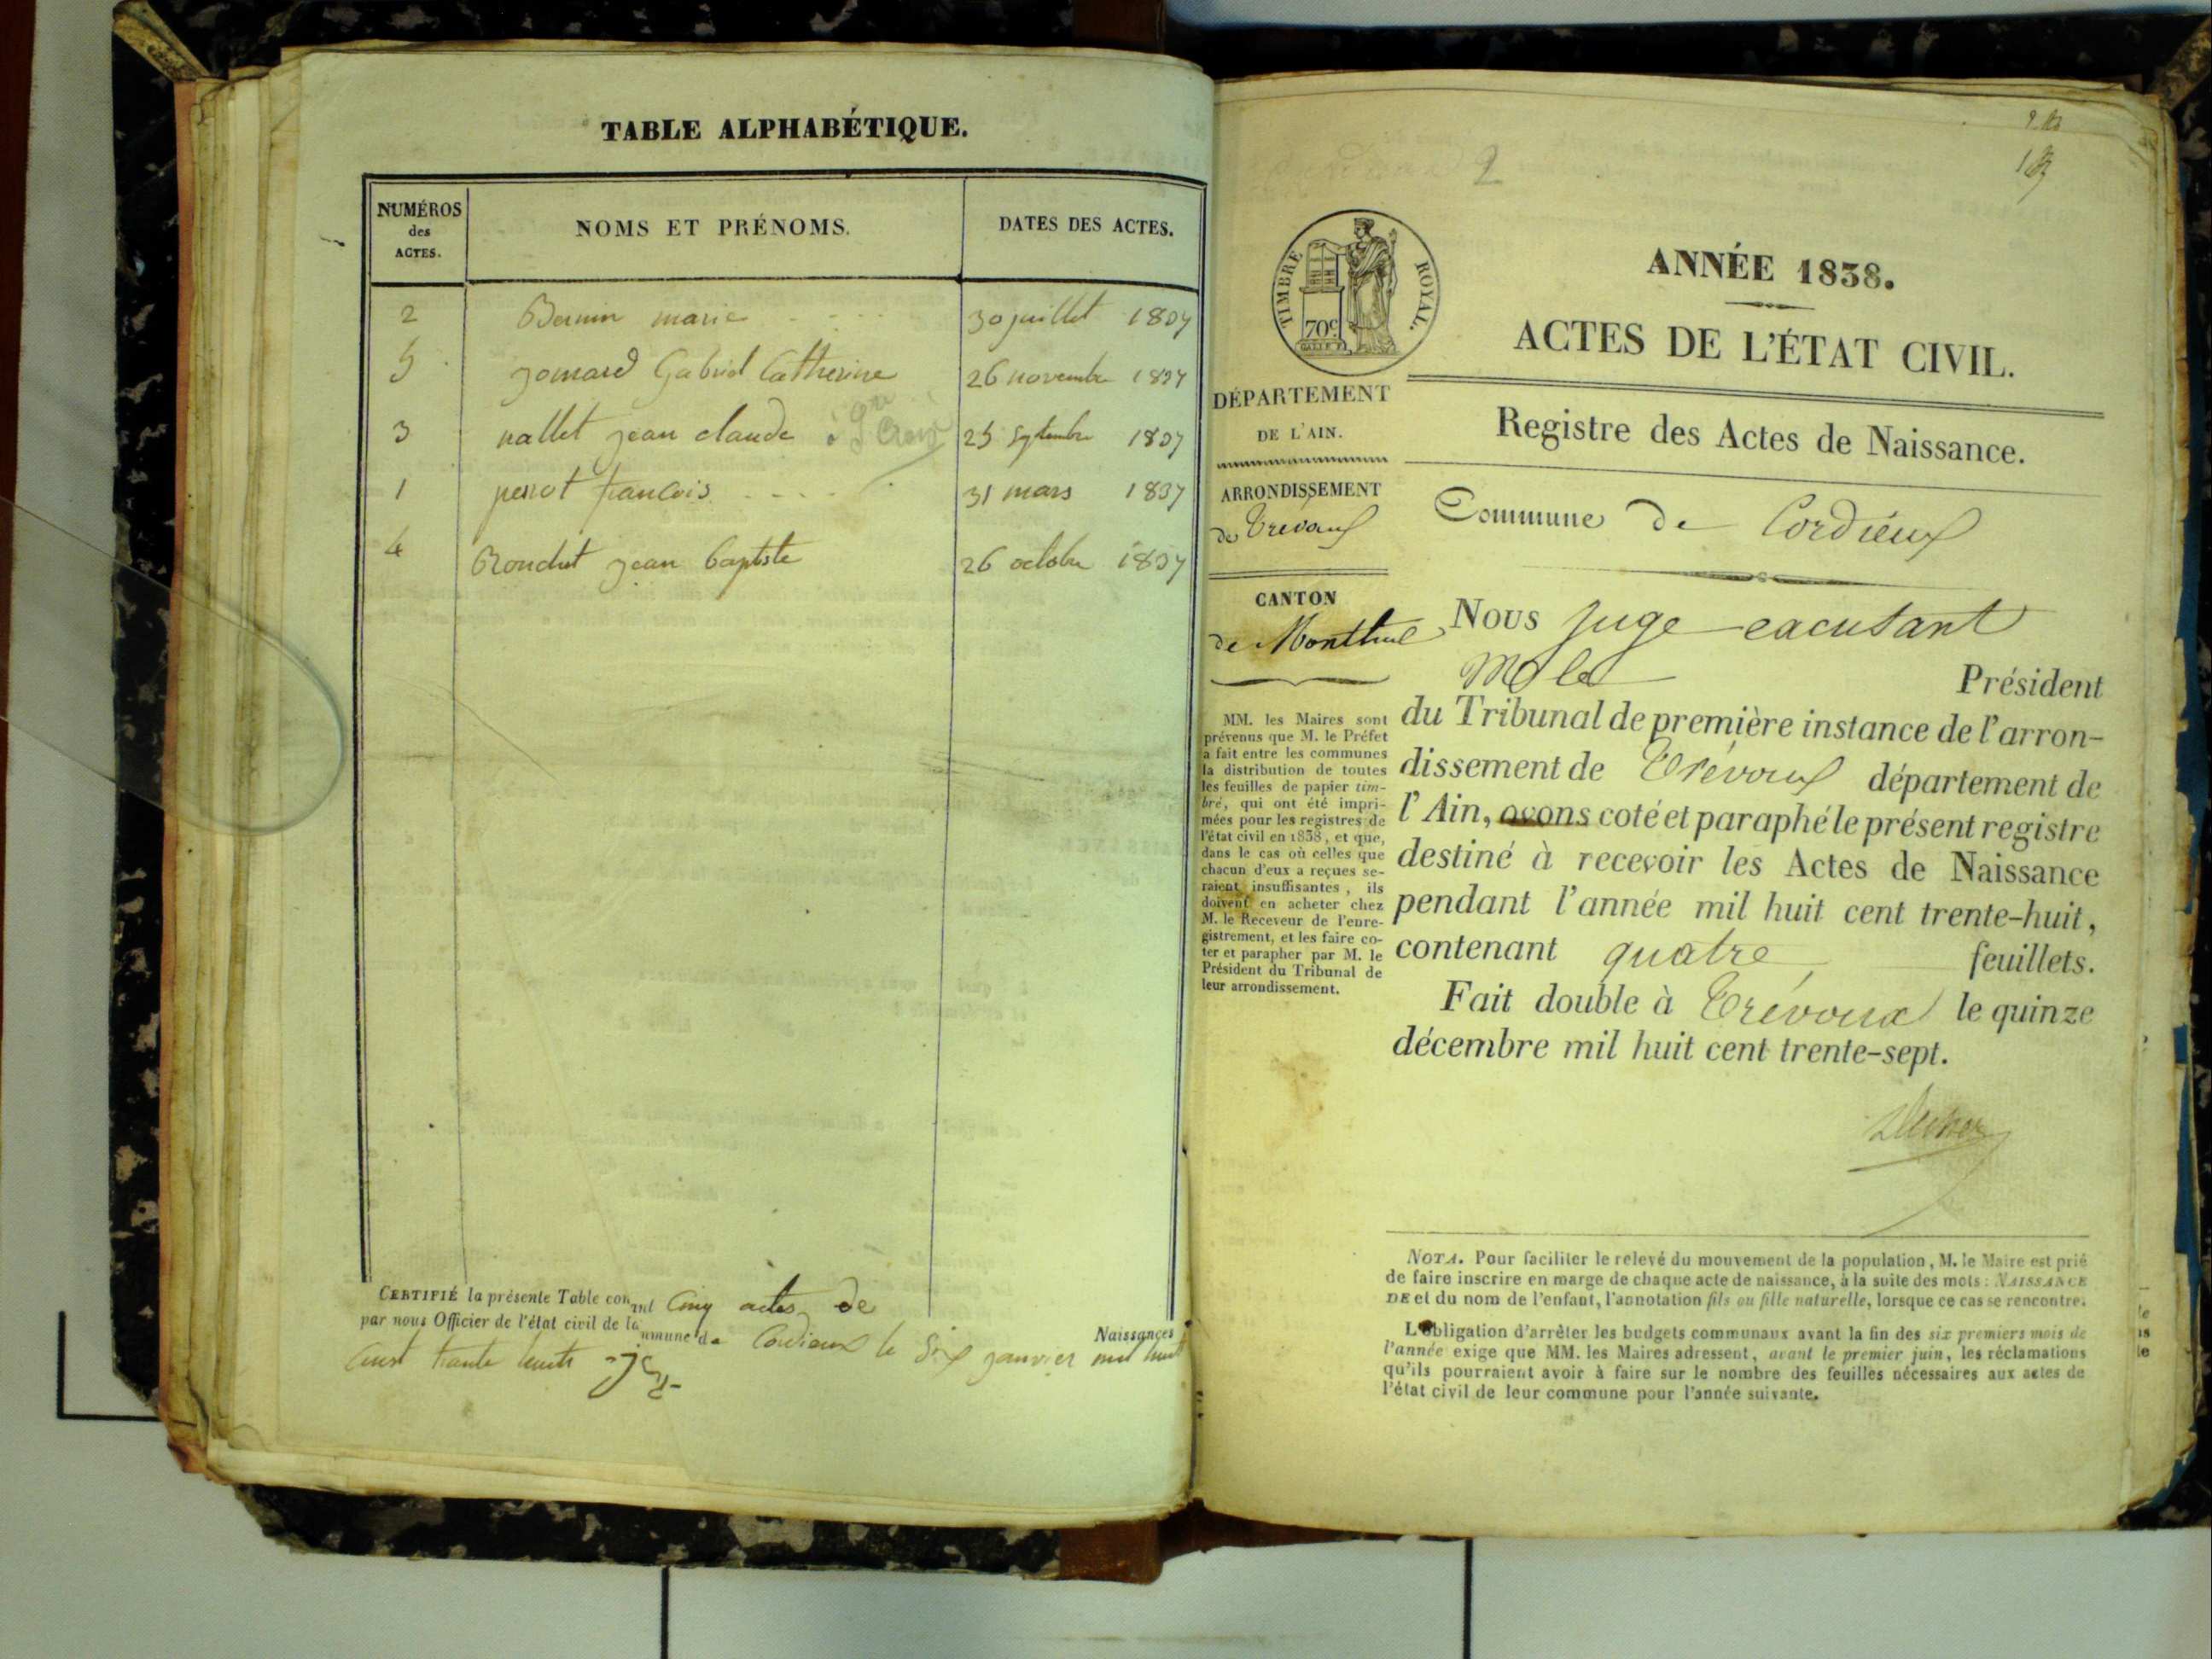 TABLE ALPHABÉTIQUE.
NUMÉROS des ACTES. NOMS ET PRÉNOMS. DATES DES ACTES.
2 Bernin marie 30 juillet 1837
5 jomard Gabriel Catherine 26 novembre 1837
3 nallet jean claude 25 septembre 1837
1 perrot francois 31 mars 1837
4 Rondet jean baptiste 26 octobre 1837
CERTIFIÉ la présente Table con ant Cinq actes de
Naissances
par nous Officier de l'état civil de la mmune de Cordieux le Six janvier mil huit
cent trente huit
2
TIMBRE ROYAL.
70c
ANNÉE 1838.
ACTES DE L'ÉTAT CIVIL.
DÉPARTEMENT
DE L'AIN.
ARRONDISSEMENT
de Trevoux
CANTON
de Montluel
MM. les Maires sont
prévenus que M. le Préfet
a fait entre les communes
la distribution de toutes
les feuilles de papier tim-
bré, qui ont été impri-
mées pour les registres de
l'état civil en 1838, et que,
dans le cas où celles que
chacun d'eux a reçues se-
raient insuffisantes, ils
doivent en acheter chez
M. le Receveur de l'enre-
gistrement, et les faire co-
ter et parapher par M. le
Président du Tribunal de
leur arrondissement.
Registre des Actes de Naissance.
Commune de Cordieux
Nous juge
Président
du Tribunal de première instance de l'arron-
dissement de Trévoux département de
l'Ain, avons coté et paraphé le présent registre
destiné à recevoir les Actes de Naissance
pendant l'année mil huit cent trente-huit,
contenant quatre feuillets.
Fait double à Trévoux le quinze
décembre mil huit cent trente-sept.
NOTA. Pour faciliter le relevé du mouvement de la population, M. le Maire est prié
de faire inscrire en marge de chaque acte de naissance, à la suite des mots: NAISSANCE
DE et du nom de l'enfant, l'annotation fils ou fille naturelle, lorsque ce cas se rencontre.
L'obligation d'arrêter les budgets communaux avant la fin des six premiers mois de
l'année exige que MM. les Maires adressent, avant le premier juin, les réclamations
qu'ils pourraient avoir à faire sur le nombre des feuilles nécessaires aux actes de
l'état civil de leur commune pour l'année suivante.